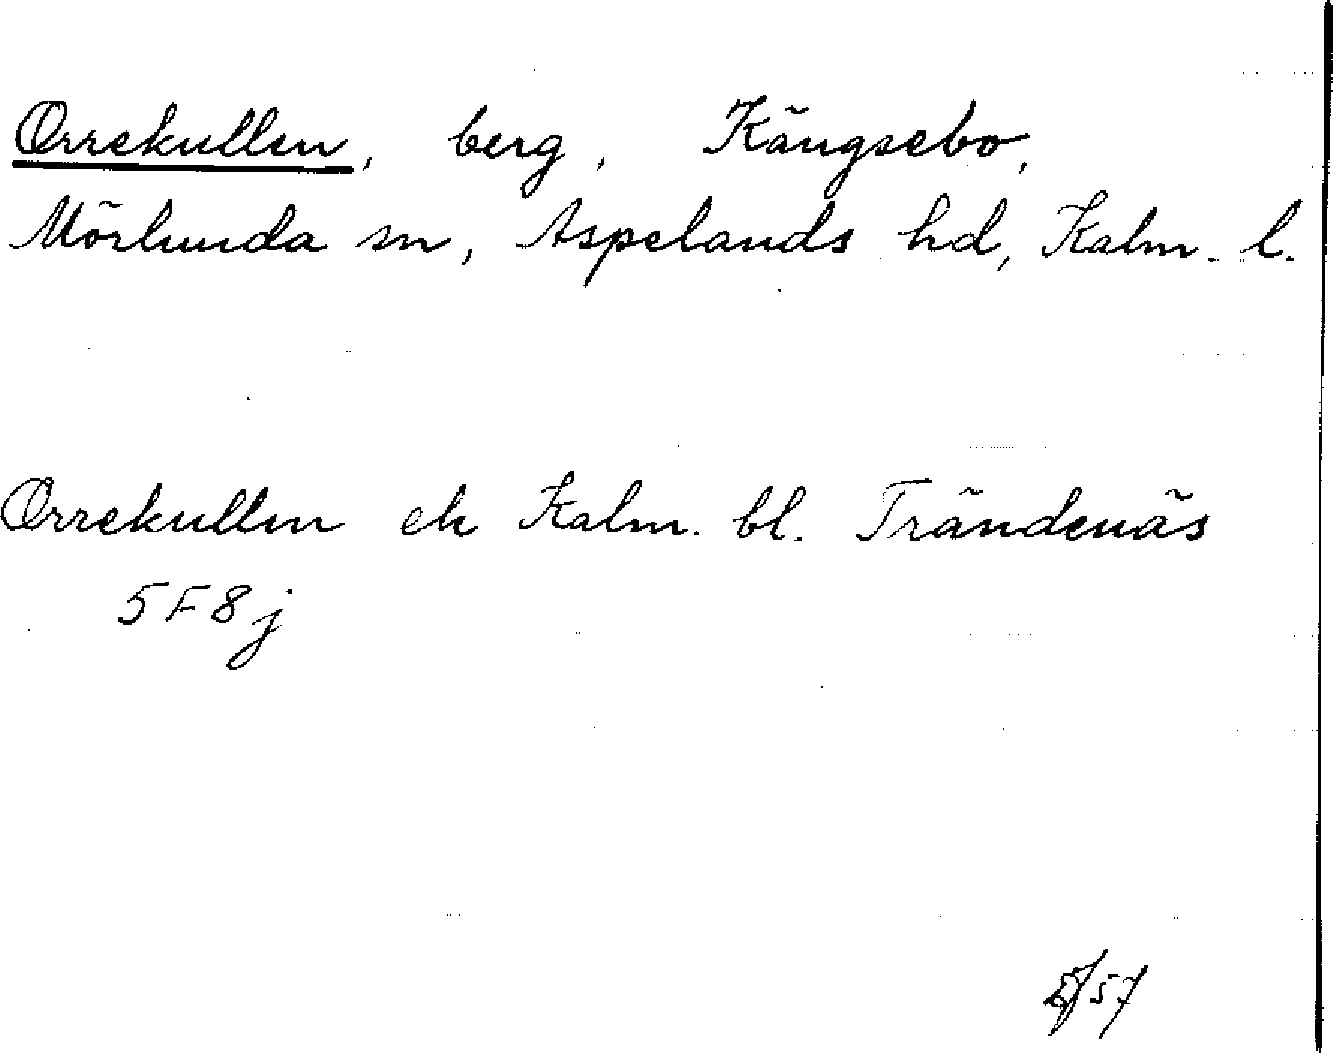 Orrekullen, berg, Kängsebo,
Mörlunda sn, Aspelands hd, Kalm. l.
Orrekullen ek Kalm. bl. Trändenäs
5F8j